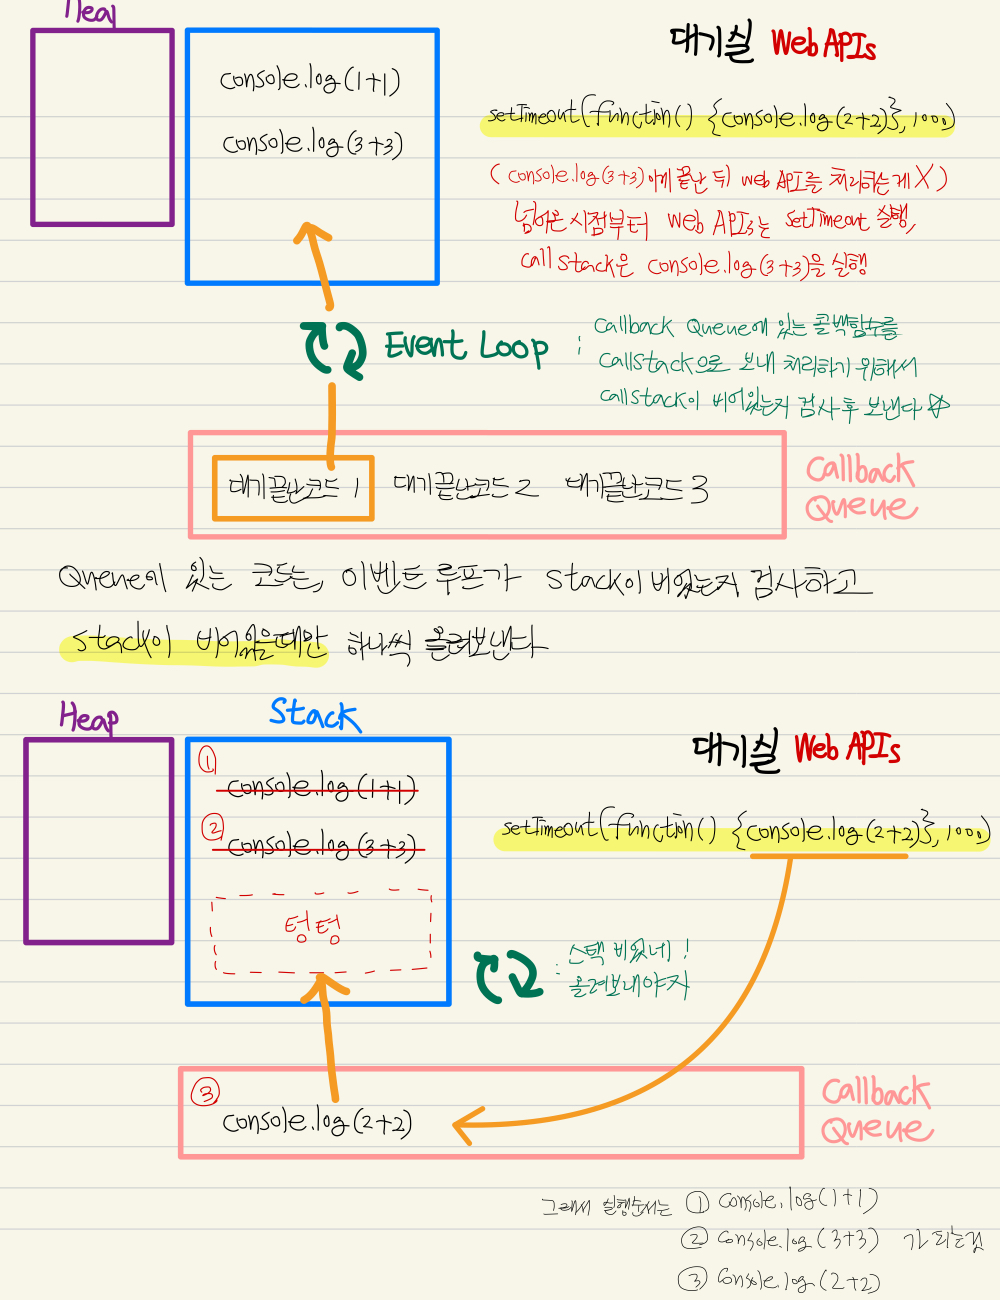 Heap
대기실 Web APIs
console.log(1+1)
console.log(3+3)
setTimeout(function() {console.log(2+2)}, 1000)
(console.log(3+3)이게 끝난 뒤 web API를 처리하는게 X)
넘어온 시점부터 Web APIs는 setTimeout 실행,
call stack은 console.log(3+3)을 실행
Event Loop :
Callback Queue에 있는 콜백함수를
Callstack으로 보내 처리하기 위해서
callstack이 비어있는지 검사 후 보낸다 ☆
대기끝난코드 1 대기끝난코드 2 대기끝난코드 3
Callback
Queue
Queue에 있는 코드는, 이벤트 루프가 stack이 비었는지 검사하고
stack이 비어있을때만 하나씩 올려보낸다
Heap
Stack
대기실 Web APIs
① console.log(1+1)
② console.log(3+3)
setTimeout(function() {console.log(2+2)}, 1000)
텅텅
: 스택 비었네!
올려보내야지
③
console.log(2+2)
Callback
Queue
그래서 실행순서는 ① console.log(1+1)
② console.log(3+3) 가 되는것
③ console.log(2+2)